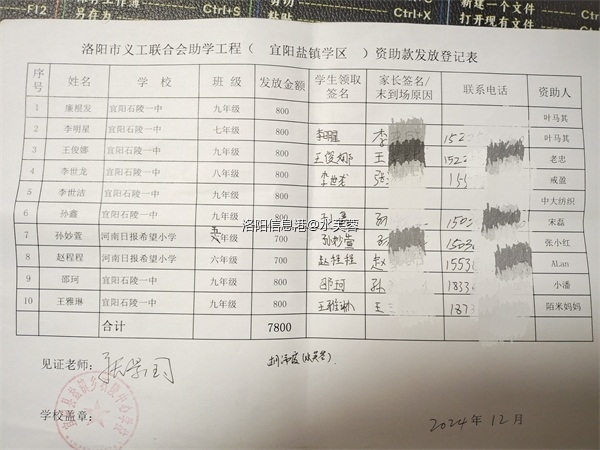 FI2
另存为
Ctrl+S
剪切
Ctrl+X
新建一个文件
打开现有文件
洛阳市义工联合会助学工程（ 宜阳盐镇学区 ）资助款发放登记表
序号 姓名 学 校 班 级 发放金额 学生领取签名 家长签名/未到场原因 联系电话 资助人
1 廉根发 宜阳石陵一中 九年级 800 叶马其
2 李明星 宜阳石陵一中 七年级 800 李明星 李 152 叶马其
3 王俊娜 宜阳石陵一中 九年级 800 王俊娜 王 152 老忠
4 李世龙 宜阳石陵一中 八年级 800 李世龙 张 155 戒盈
5 李世洁 宜阳石陵一中 九年级 800 中大纺织
6 孙鑫 宜阳石陵一中 九年级 800 孙 150 宋磊
7 孙妙萱 河南日报希望小学 年级 700 孙妙萱 孙 1503 张小红
8 赵程程 河南日报希望小学 六年级 700 赵程程 赵 1553 ALan
9 邵珂 宜阳石陵一中 九年级 800 邵珂 孙 1833 小潘
10 王雅琳 宜阳石陵一中 九年级 800 王雅琳 王 1873 陌米妈妈
合计 7800
洛阳信息港@水芙蓉
见证老师：
(水芙蓉)
学校盖章：
2024年12月